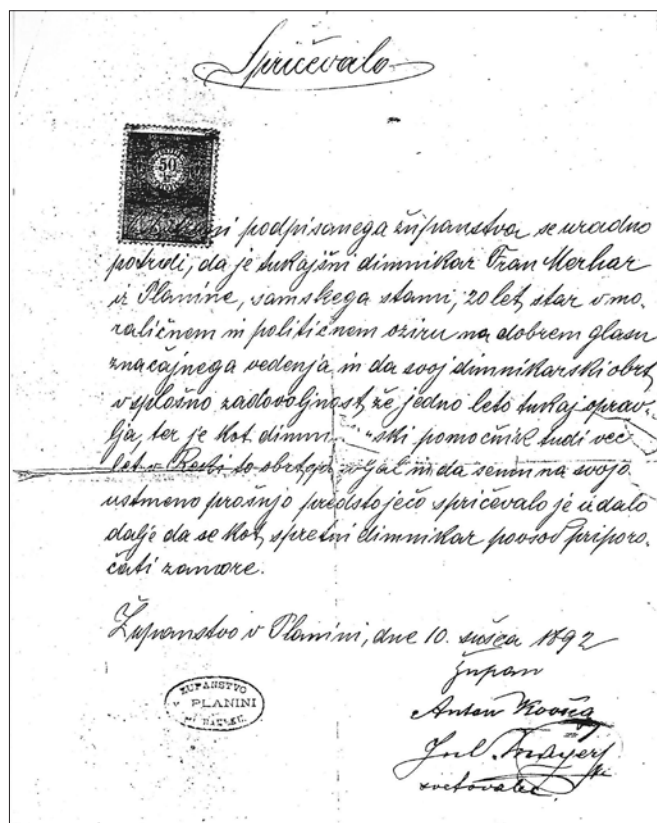 Spričevalo
50
podpisanega županstva se uradno
potrdi, da je tukajšni dimnikar Fran Merhar
iz Planine, samskega stanu, 20 let star v mo-
raličnem in političnem oziru na dobrem glasu
značajnega vedenja in da svoj dimnikarski obrt
v splošno zadovoljnost že jedno leto tukaj oprav-
lja, ter je kot ski pomočnik tudi več
let v to obrt in da se mu na svojo
ustmeno prošnjo predstoječo spričevalo je izdalo
dalje da se kot spretni dimnikar povsod priporo-
čati zamore.
Županstvo v Planini, dne 10. sušca 1892
župan
ŽUPANSTVO
v PLANINI
Anton
Jul.
svetovalec